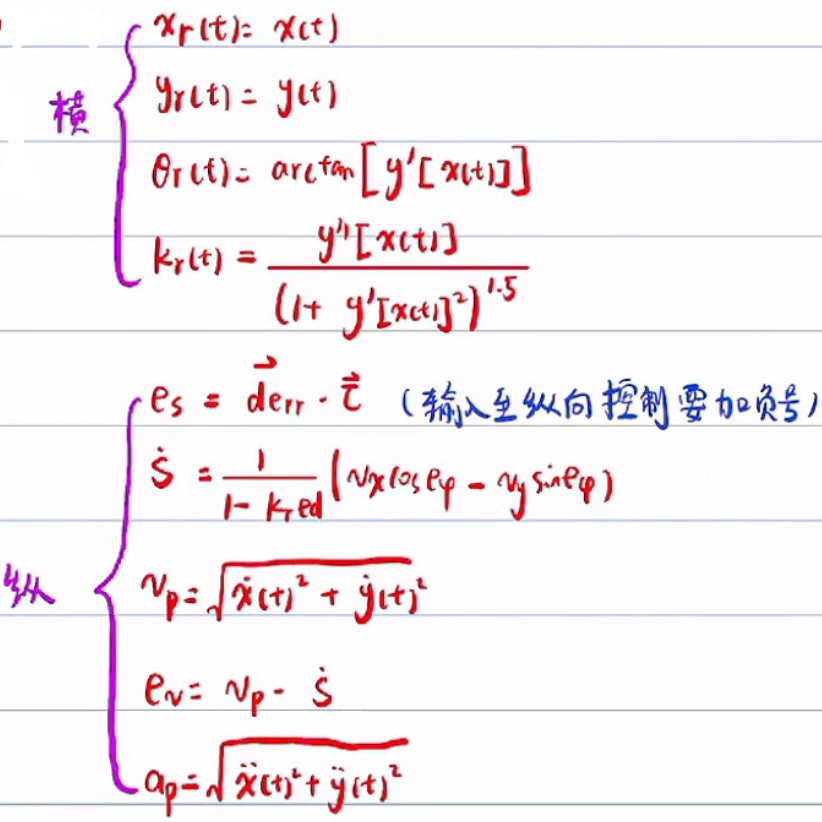 横
x_r(t) = x(t)
y_r(t) = y(t)
θ_r(t) = arctan[y'[x(t)]]
k_r(t) = y''[x(t)] / (1 + y'[x(t)]²)^1.5
纵
e_s = d⃗_err · τ⃗ (输入至纵向控制要加负号)
ṡ = 1 / (1 - k_r e_d) (v_x cos e_φ - v_y sin e_φ)
v_p = √(ẋ(t)² + ẏ(t)²)
e_v = v_p - ṡ
a_p = √(ẍ(t)² + ÿ(t)²)